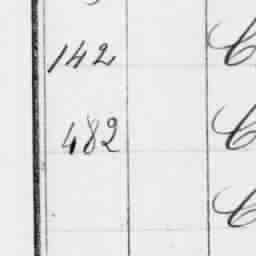 142
482